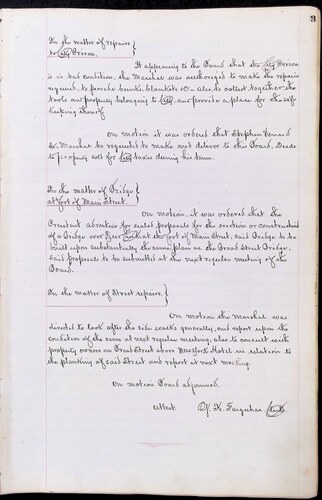 3
In the matter of repairs }
to City Prison.
It appearing to the Board that the City Prison
is in bad condition, the Marshal was authorized to make the repairs
required, to provide bunks, blankets &c - also to collect together the
tools and property belonging to City, and provide a place for the safe
keeping thereof.
On motion it was ordered that Stephen Venard
Ex Marshal be requested to make and deliver to the Board, Deeds
to property sold for City taxes during his term.
In the matter of Bridge }
at foot of Main Street.
On motion it was ordered that the
President advertise for sealed proposals for the erection or construction
of a Bridge over Deer Creek at the foot of Main Street. Said Bridge to be
built upon substantially the same plan as the Broad Street Bridge.
Said proposals to be submitted at the next regular meeting of the
Board.
In the matter of Street repairs }
On motion the Marshal was
directed to look after the side walks generally, and report upon the
condition of the same at next regular meeting, also to consult with
property owners on Broad Street above Hotel in relation to
the planking of said Street and report at next meeting.
On motion Board adjourned.
Attest. Farquhar Clerk